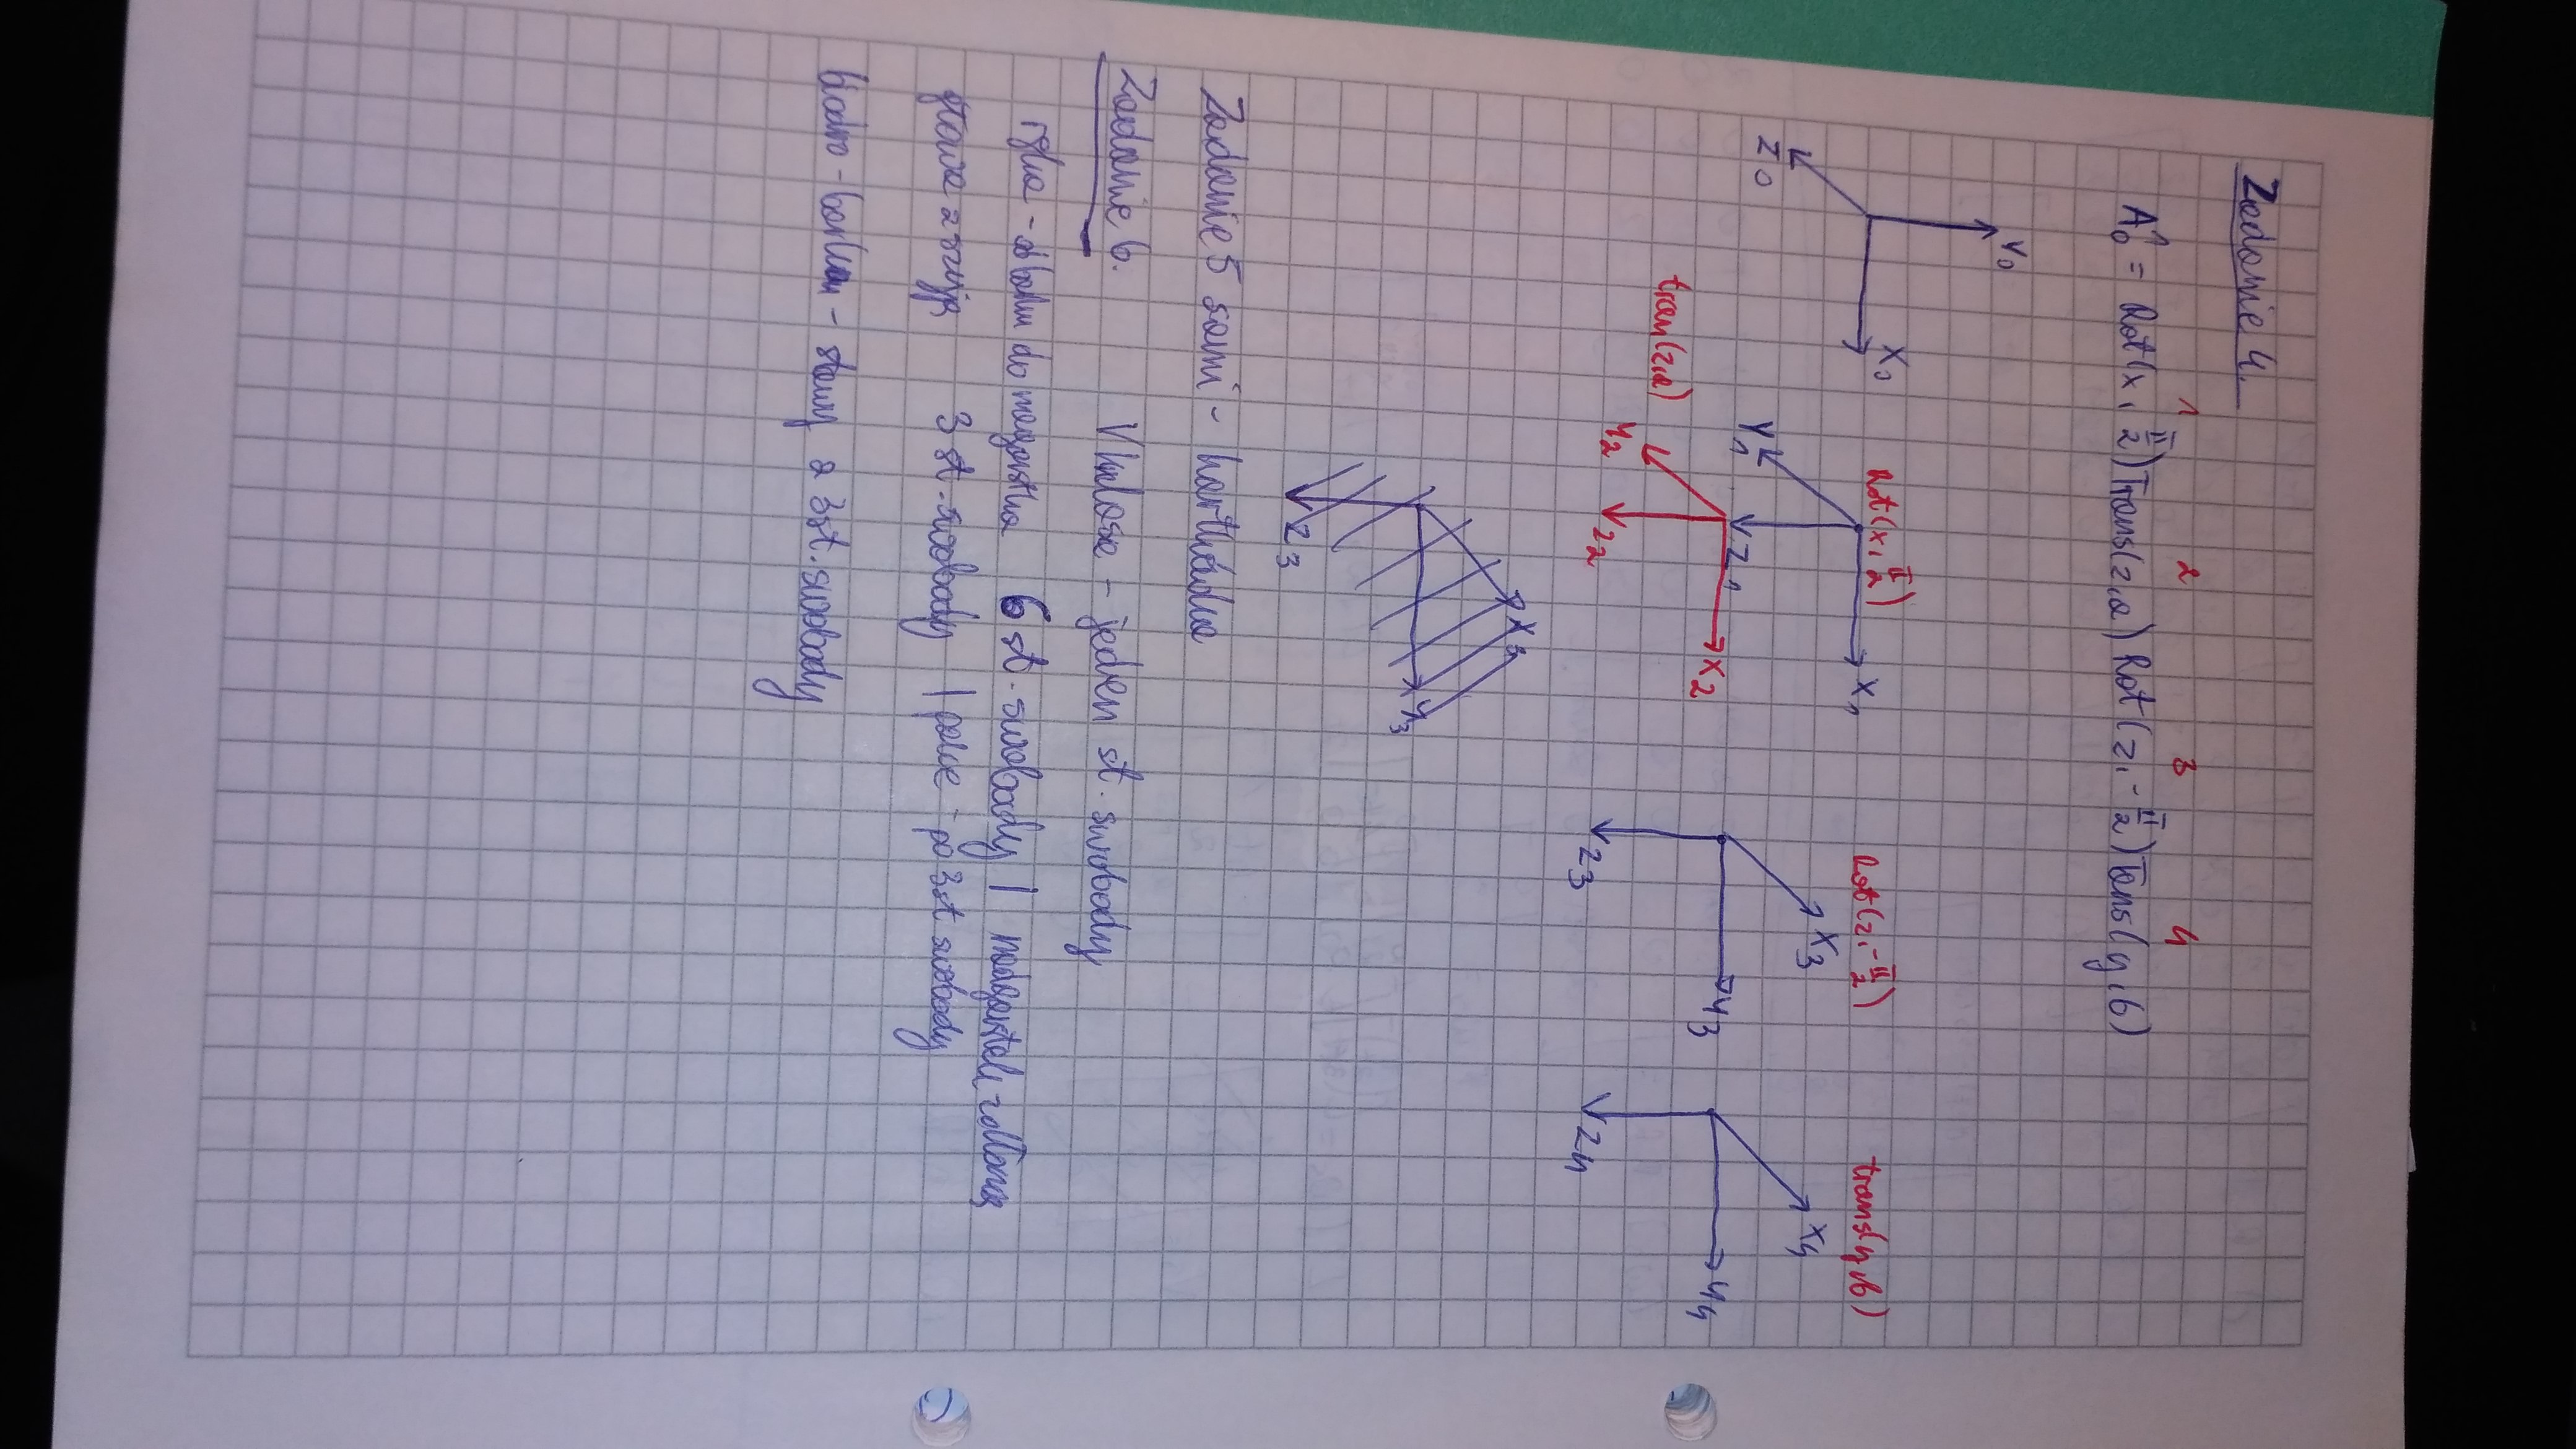 Zadanie 4.
1 2 3 4
A₀¹ = Rot(x, π/2) Trans(z,a) Rot(z, -π/2) Tans(y,b)
Y₀
X₀
Z₀
Rot(x, π/2)
X₁
Y₁
Z₁
tran(z,a)
X₂
Y₂
Z₂
Rot(z, -π/2)
X₃
Y₃
Z₃
trans(y,b)
X₄
Y₄
Z₄
X₃
Y₃
Z₃
Zadanie 5 sami - kartkówka
Zadanie 6. V klasa - jeden st. swobody
ręka - do 6 st. swobody | nadgarstek
głowa z szyją 3 st. swobody | palce - po 3 st swobody
biodro - - stawy o 3 st. swobody